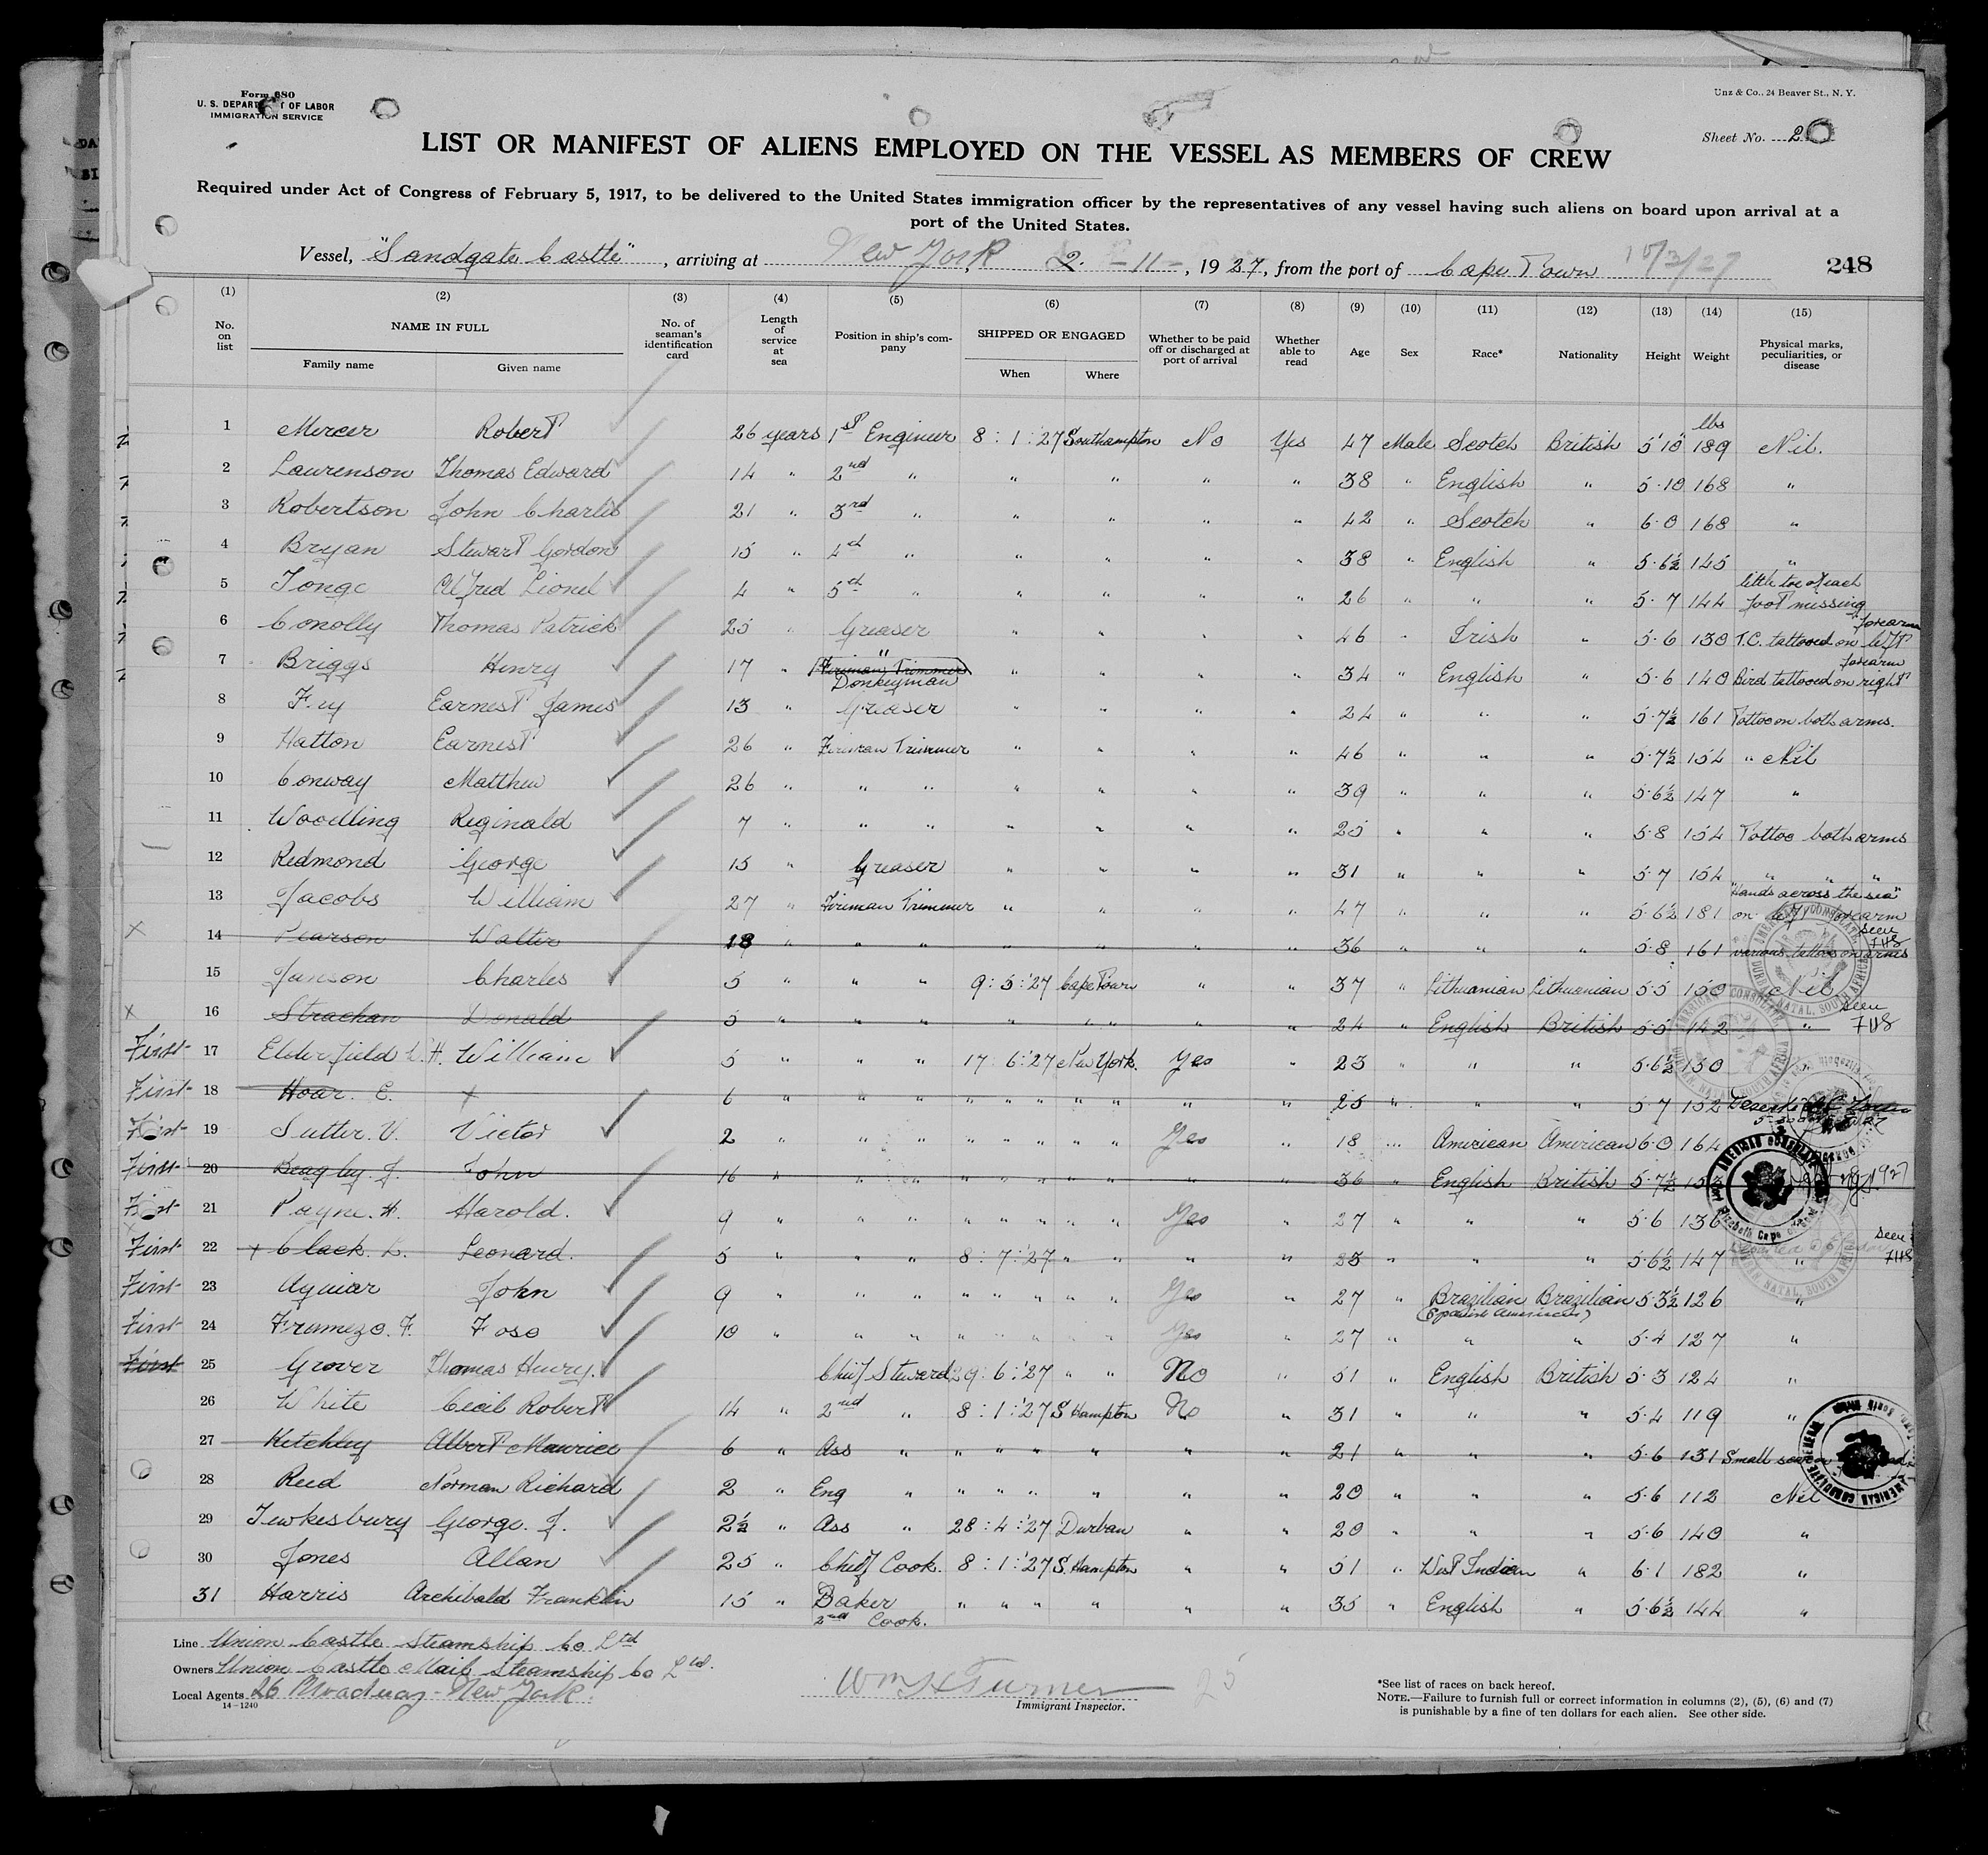 Form 680
U. S. DEPARTMENT OF LABOR
IMMIGRATION SERVICE
Unz & Co., 24 Beaver St., N. Y.
Sheet No. 2
LIST OR MANIFEST OF ALIENS EMPLOYED ON THE VESSEL AS MEMBERS OF CREW
Required under Act of Congress of February 5, 1917, to be delivered to the United States immigration officer by the representatives of any vessel having such aliens on board upon arrival at a
port of the United States.
Vessel, "Sandgate Castle", arriving at New York 2-11-, 1927, from the port of Cape Town
248
(1) (2) (3) (4) (5) (6) (7) (8) (9) (10) (11) (12) (13) (14) (15)
No. on list NAME IN FULL Family name Given name No. of seaman's identification card Length of service at sea Position in ship's company SHIPPED OR ENGAGED When Where Whether to be paid off or discharged at port of arrival Whether able to read Age Sex Race* Nationality Height Weight Physical marks, peculiarities, or disease
lbs
1 Mercer Robert 26 years 1st Engineer 8:1:27 Southampton No Yes 47 Male Scotch British 5'10" 189 Nil.
2 Laurenson Thomas Edward 14 " 2nd " " " " " 38 " English " 5·10 168 "
3 Robertson John Charles 21 " 3rd " " " " " 42 " Scotch " 6·0 168 "
4 Bryan Stewart Gordon 15 " 4th " " " " " 38 " English " 5·6½ 145 "
5 Tonge Alfred Lionel 4 " 5th " " " " " 26 " " " 5·7 144 little toe of each foot missing
6 Conolly Thomas Patrick 25 " Greaser " " " " 46 " Irish " 5·6 130 T.C. tattooed on left forearm
7 Briggs Henry 17 " " Fireman Trimmer Donkeyman " " " " 34 " English " 5·6 140 Bird tattooed on right forearm
8 Fry Earnest James 13 " Greaser " " " " 24 " " " 5·7½ 161 Tattoo on both arms.
9 Hatton Earnest 26 " Fireman Trimmer " " " " 46 " " " 5·7½ 154 " Nil
10 Conway Matthew 26 " " " " " " " 39 " " " 5·6½ 147 "
11 Woodling Reginald 7 " " " " " " " 25 " " " 5·8 154 Tattoo both arms
12 Redmond George 15 " Greaser " " " " 31 " " " 5·7 154 " " "
13 Jacobs William 27 " Fireman Trimmer " " " " 47 " " " 5·6½ 181 "Hands across the sea" on left forearm
x 14 Pearson Walter 18 " " " " " " " 36 " " " 5·8 161 various tattoos on arms seen 7H8
15 Janson Charles 5 " " " 9:5:'27 Cape Town " " 37 " Lithuanian Lithuanian 5·5 150 Nil
x 16 Strachan Donald 5 " " " " " " " " 24 " English British 5·5 142 " seen 7H8
First 17 Elderfield W. H. William 5 " " " 17:6:'27 New York. Yes " 23 " " " 5·6½ 150
First 18 Hoar. E. x 6 " " " " " " " " " " " 25 " " " 5·7 152
First 19 Sutter. V. Victor 2 " " " " " " " " Yes " 18 " American American 6·0 164
First 20 Beagley. J. John 16 " " " " " " " " " " 36 " English British 5·7½
First 21 Payne. H. Harold. 9 " " " " " " " " Yes " 27 " " " 5·6 136
First 22 x Clack. L. Leonard. 5 " " " 8:7:'27 " " " " " " 5·6½ 147 " seen 7H8
First 23 Aguiar John 9 " " " " " " " " Yes " 27 " Brazilian Brazilian 5·3½ 126 "
(Spanish American)
First 24 Frumezo. F. Foso 10 " " " " " " " " Yes " 27 " " " 5·4 127 "
First 25 Grover Thomas Henry. Chief Steward 29:6:'27 " " No " 51 " English British 5·3 124 "
26 White Cecil Robert 14 " 2nd " 8:1:'27 S Hampton No " 31 " " " 5·4 119 "
27 Ketchley Albert Maurice 6 " Ass " " " " " " " 21 " " " 5·6 131 Small scar
28 Reed Norman Richard 2 " Eng " " " " " " " 20 " " " 5·6 112 Nil
29 Tewkesbury George. J. 2½ " Ass " 28:4:'27 Durban " " 20 " " " 5·6 140 "
30 Jones Allan 25 " Chief Cook. 8:1:'27 S. Hampton " " 51 " West Indian " 6·1 182 "
31 Harris Archibald Franklin 15 " Baker 2nd Cook. " " " " " " 35 " English " 5·6½ 144 "
Line Union Castle Steamship Co Ltd
Owners Union Castle Mail Steamship Co Ltd.
Local Agents 26 Broadway - New York.
14—1240
Wm H Turner 25
Immigrant Inspector.
*See list of races on back hereof.
NOTE.—Failure to furnish full or correct information in columns (2), (5), (6) and (7)
is punishable by a fine of ten dollars for each alien. See other side.